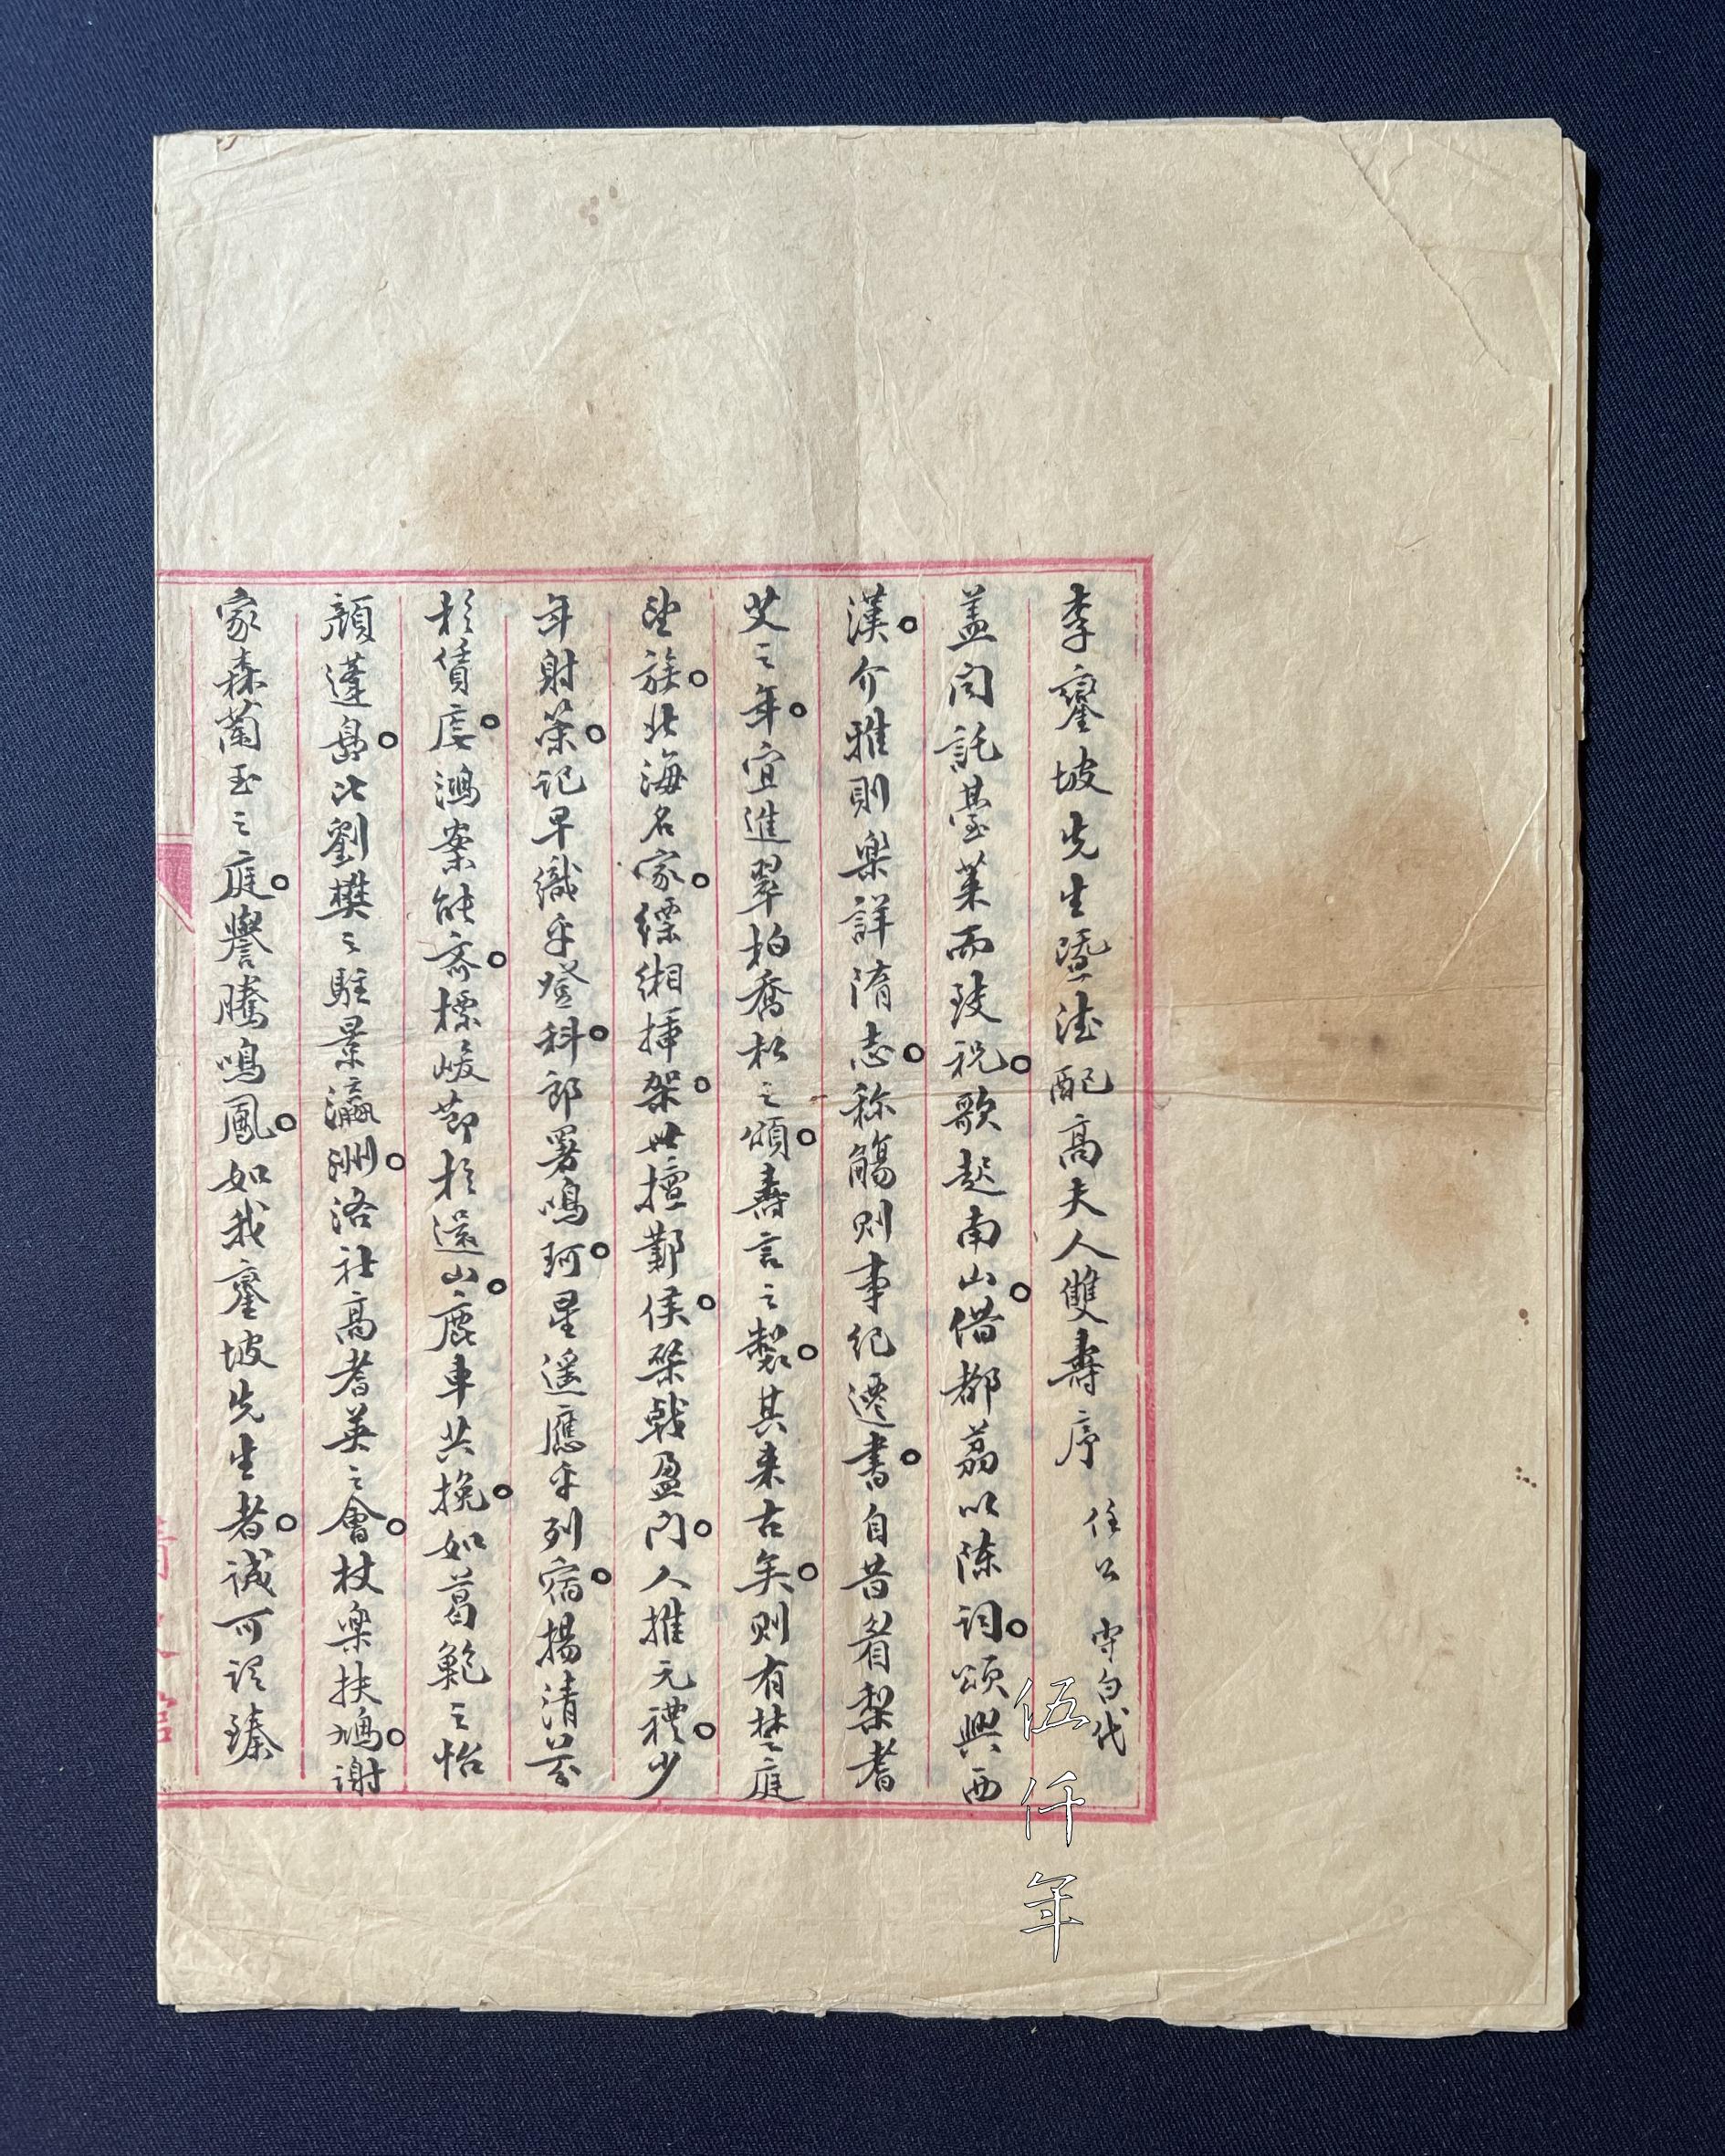 李鑾坡先生暨德配高夫人雙壽序 任公 守白代
蓋聞託臺萊而致祝。歌起南山。借都荔以陳詞。頌興西
漢。介雅則樂詳隋志。稱觴則事紀遷書。自昔眉梨耆
艾之年。宜進翠柏喬松之頌。壽言之製。其來古矣。則有楚庭
望族。北海名家。縹緗插架。世擅鄴侯。棨戟盈門。人推元禮。少
年射策。記早識乎登科。郎署鳴珂。星遥應乎列宿。揚清芬
於賃廡。鴻案能齊。標峻節於還山。鹿車共挽。如葛鮑之怡
顔蓬島。比劉樊之駐景瀛洲。洛社高耆英之會。杖樂扶鳩。謝
家森蘭玉之庭。譽騰鳴鳳。如我鑾坡先生者。誠可謂臻
伍仟年